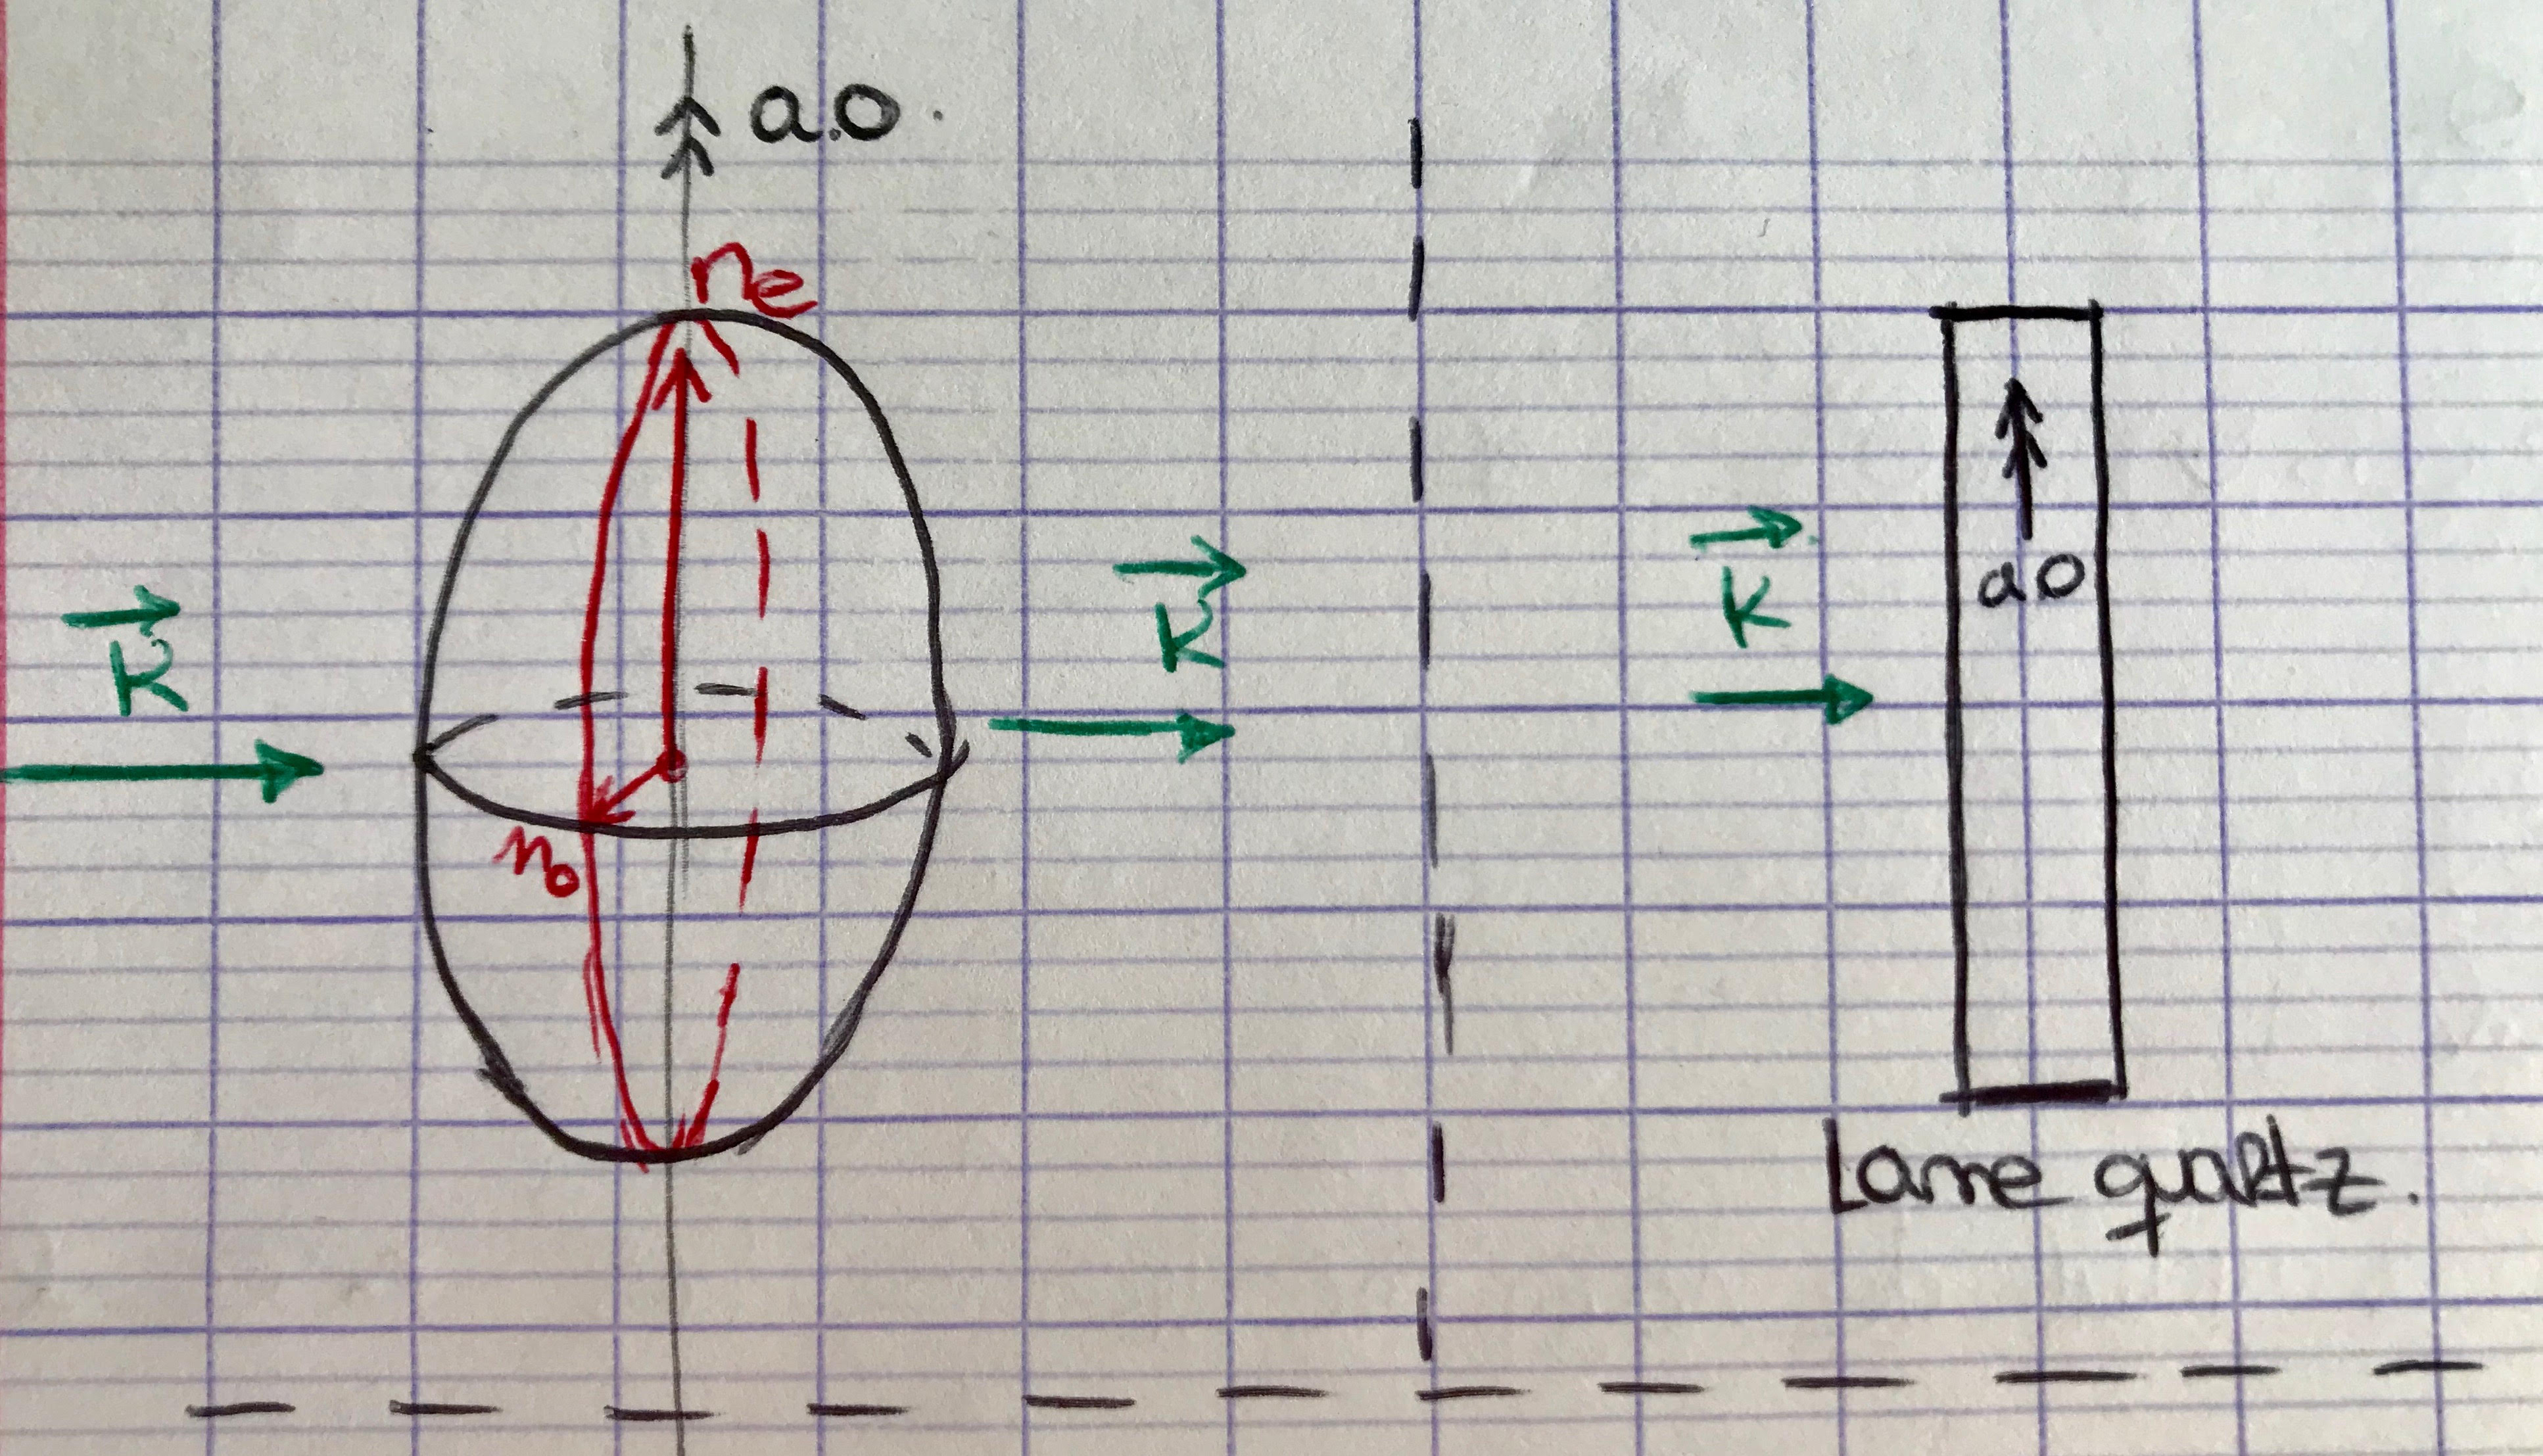 a.o.
ne
K
K
no
K
ao
Lame quartz.